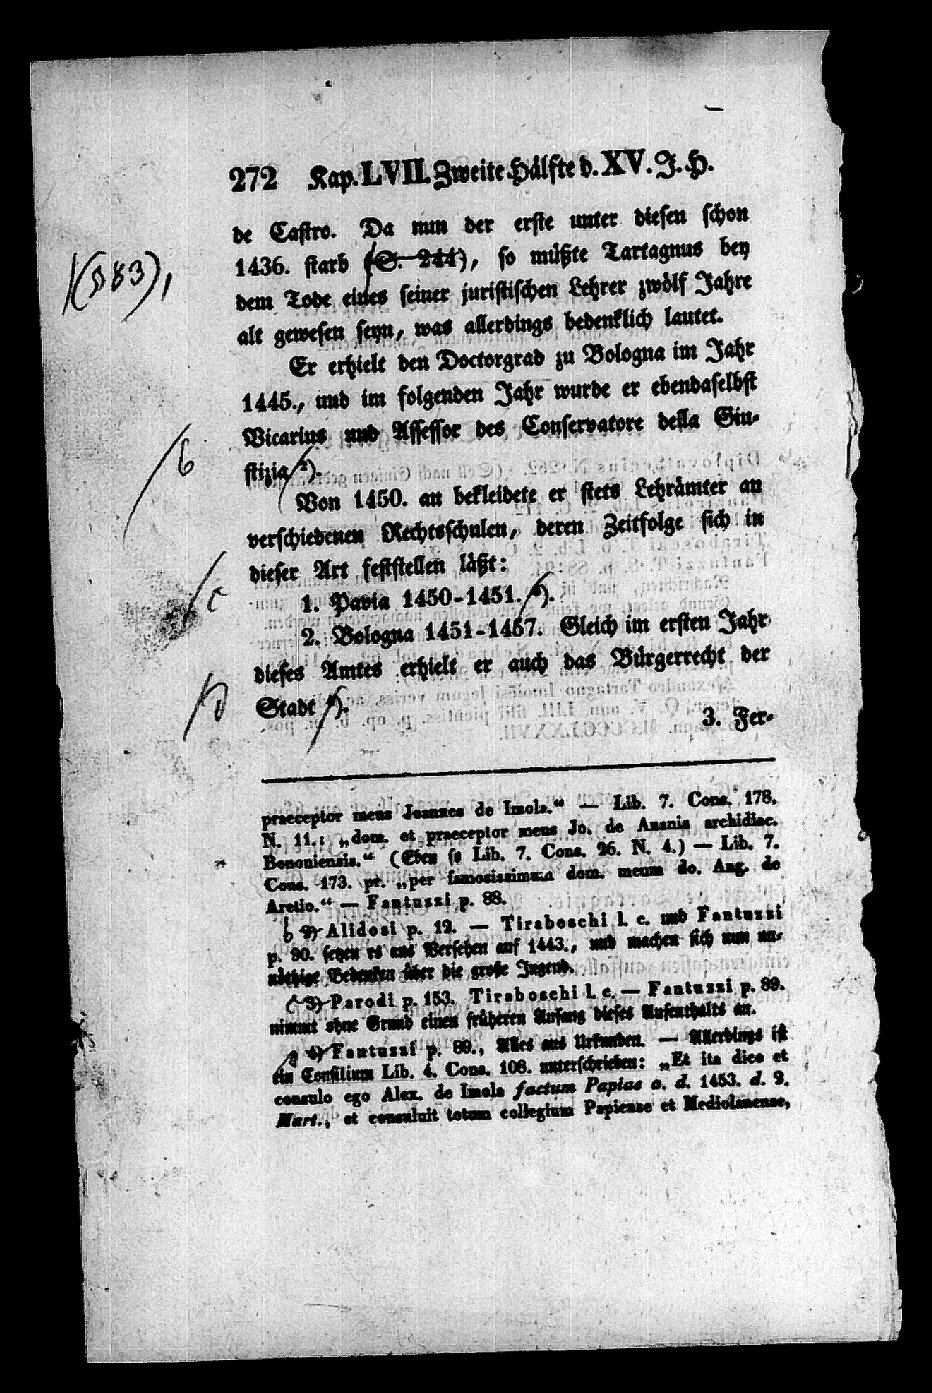 272 Kap. LVII. Zweite Hälfte d. XV. J. H.
de Castro. Da nun der erste unter diesen schon
1436. starb (S. 244), so müßte Tartagnus bey
(§ 83),
dem Tode eines seiner juristischen Lehrer zwölf Jahre
alt gewesen seyn, was allerdings bedenklich lautet.
Er erhielt den Doctorgrad zu Bologna im Jahr
1445., und im folgenden Jahr wurde er ebendaselbst
Vicarius und Assessor des Conservatore della Giu-
b
stizia ²).
Von 1450. an bekleidete er stets Lehrämter an
verschiedenen Rechtsschulen, deren Zeitfolge sich in
dieser Art feststellen läßt:
c
1. Pavia 1450-1451. ³).
2. Bologna 1451-1457. Gleich im ersten Jahr
dieses Amtes erhielt er auch das Bürgerrecht der
d
Stadt ⁴).
3. Fer-
praeceptor meus Joannes de Imola.“ — Lib. 7. Cons. 178.
N. 11.: „dom. et praeceptor meus Jo. de Anania archidiac.
Bononiensis.“ (Eben so Lib. 7. Cons. 26. N. 4.) — Lib. 7.
Cons. 173. pr. „per famosissimum dom. meum do. Ang. de
Aretio.“ — Fantuzzi p. 88.
b 2) Alidosi p. 12. — Tiraboschi l. c. und Fantuzzi
p. 90. setzen es aus Versehen auf 1443., und machen sich nun un-
nöthige Bedenken über die große Jugend.
c 3) Parodi p. 153. Tiraboschi l. c. — Fantuzzi p. 89.
nimmt ohne Grund einen früheren Anfang dieses Aufenthalts an.
d 4) Fantuzzi p. 89., Alles aus Urkunden. — Allerdings ist
ein Consilium Lib. 4. Cons. 108. unterschrieben: „Et ita dico et
consulo ego Alex. de Imola factum Papiae a. d. 1453. d. 9.
Mart., et consuluit totum collegium Papiense et Mediolanense,